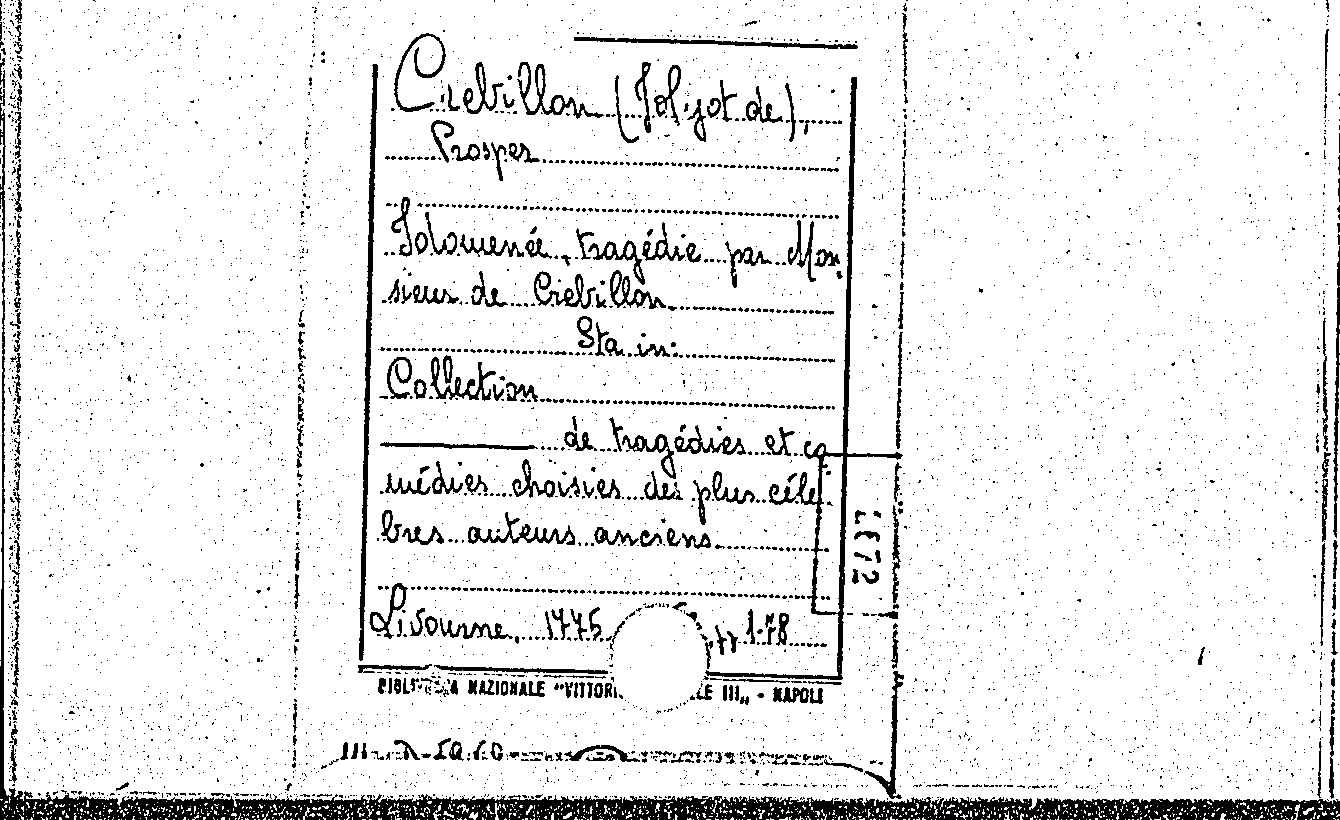 Crebillon (Jolyot de),
Prosper
Idomenée, tragédie par Mon-
sieur de Crebillon.
Sta in:
Collection
de tragédies et co-
médies choisies des plus céle-
bres auteurs anciens.
Livourne, 1775 1-78
BIBLIOTECA NAZIONALE "VITTORI LE III„ - NAPOLI